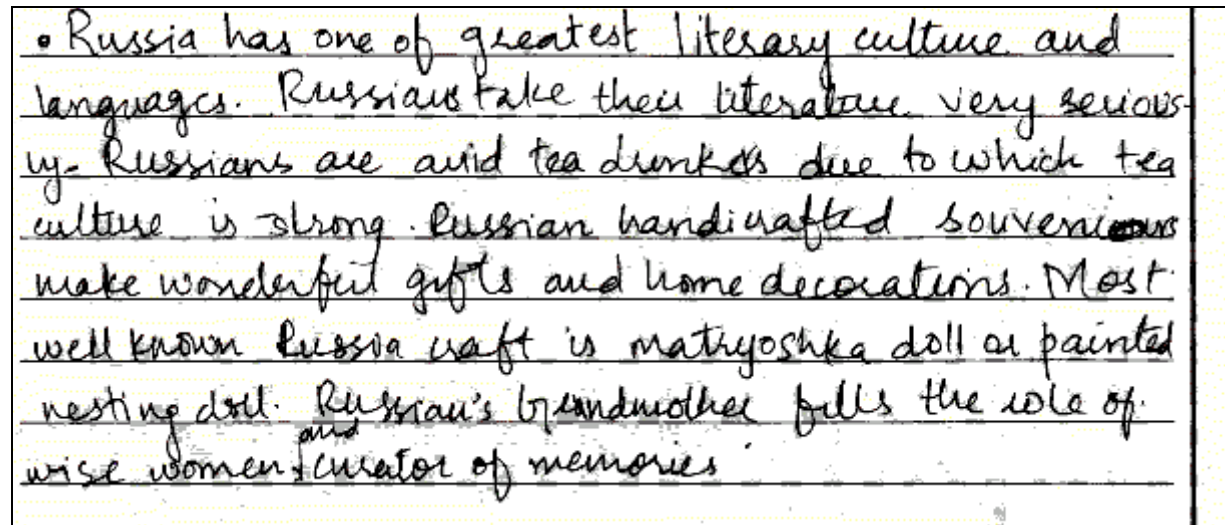 • Russia has one of greatest literary culture and
languages. Russians take their literature very serious-
ly. Russians are avid tea drinkers due to which tea
culture is strong. Russian handicrafted souveniours
make wonderful gifts and home decorations. Most
well known Russia craft is matryoshka doll or painted
nesting doll. Russian's Grandmother fills the role of
wise women and curator of memories